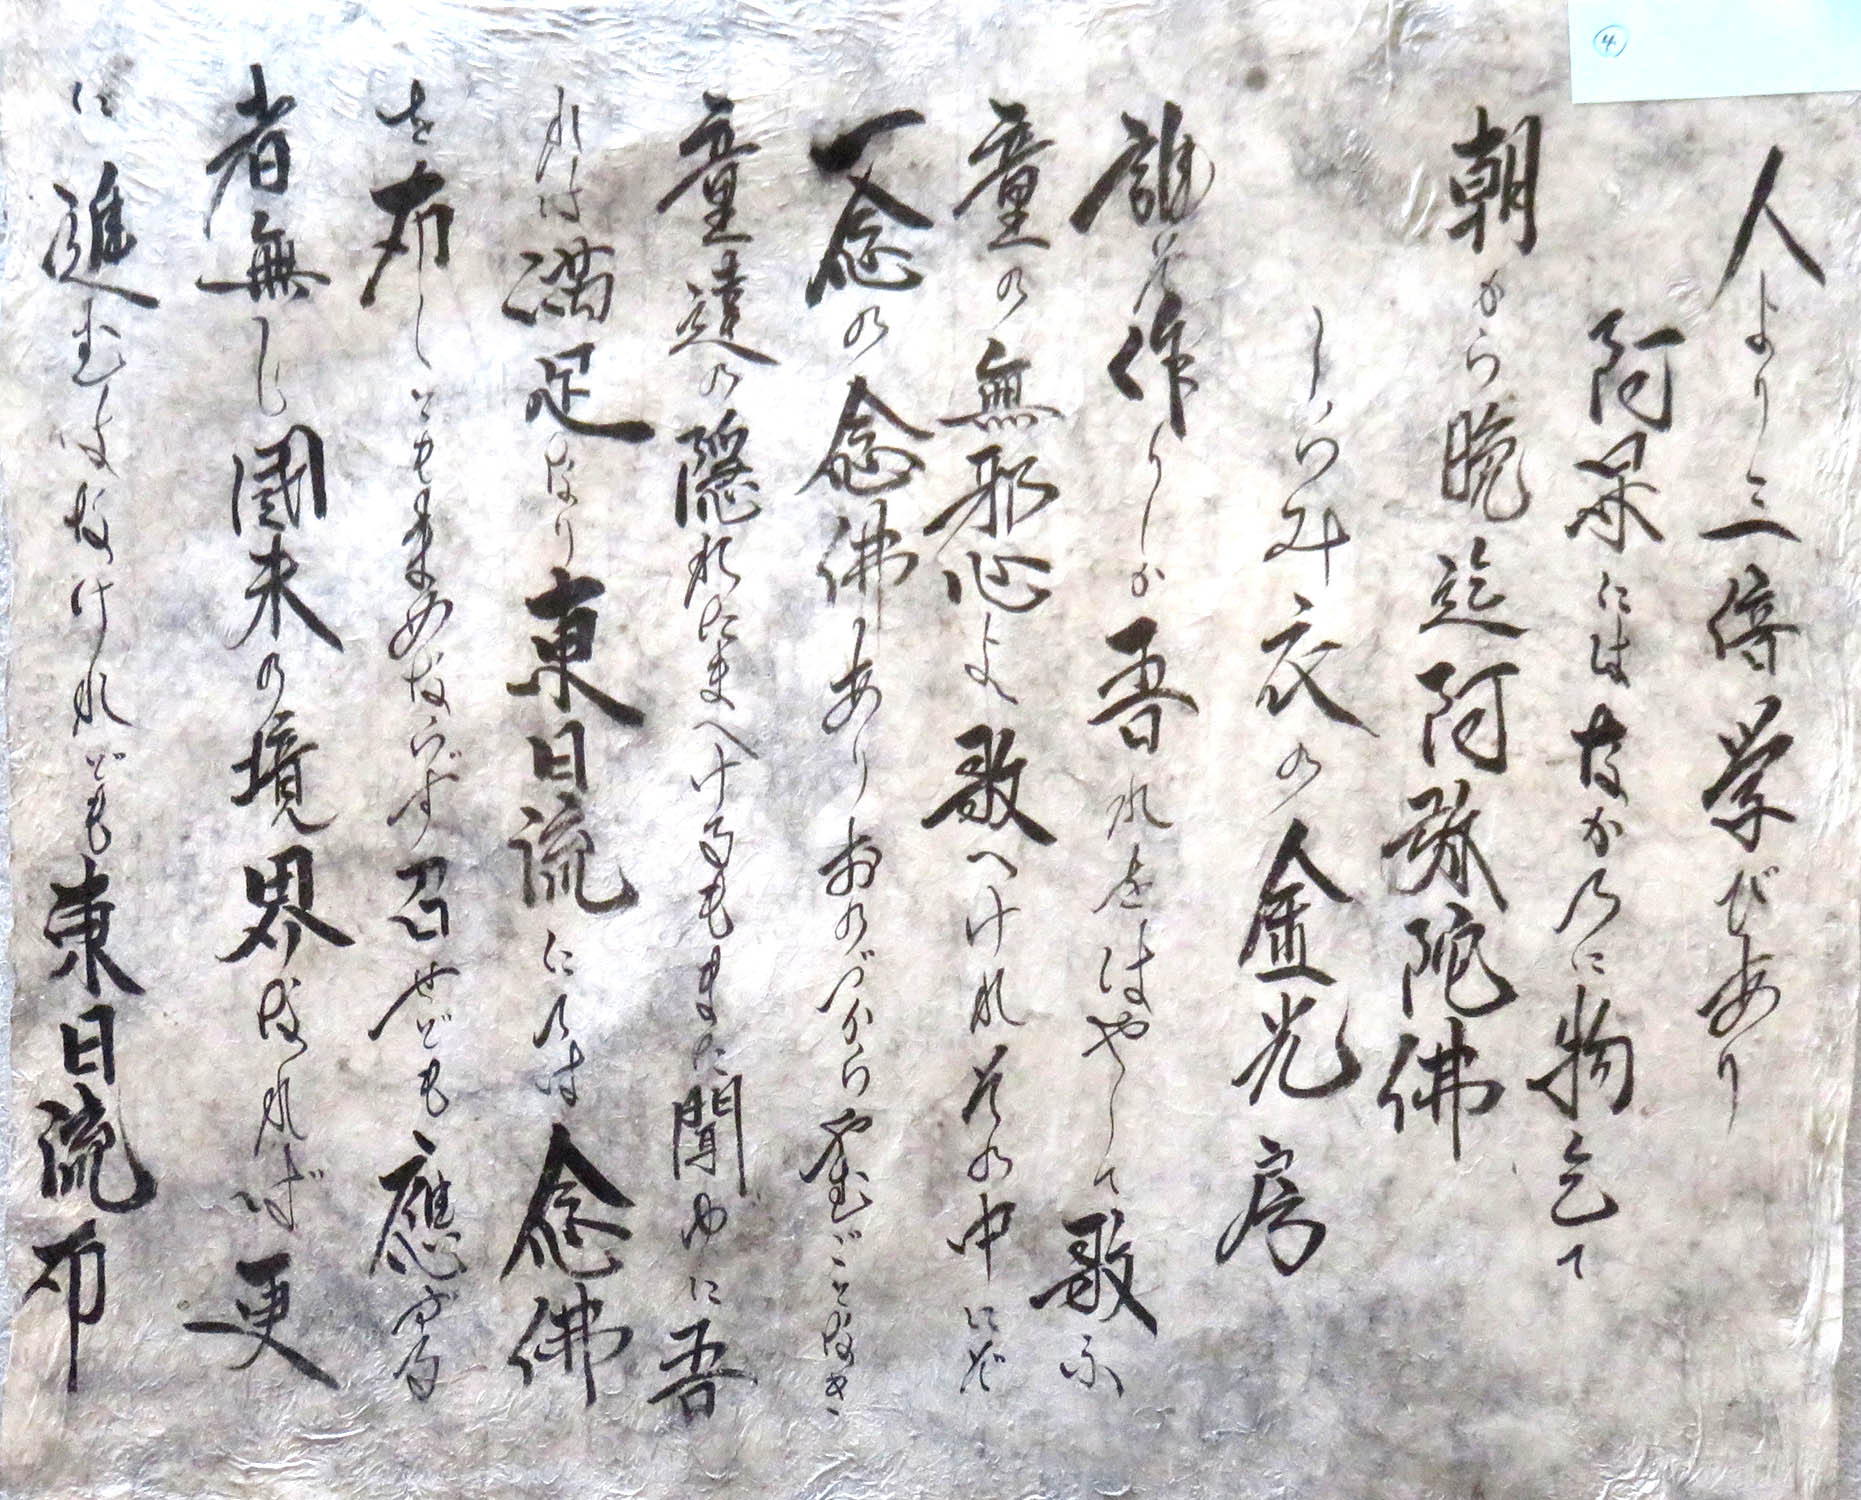 ④
人より三倍学びあり
阿呆にはなか乃に物乞て
朝から晩迄阿弥陀佛
しらみ衣の金光房
誰ぞ作りしか吾れをはやして歌ふ
童の無邪心よ歌へけれ其の中にぞ
一念の念佛ありおのづから歪ごとなき
童達の隠れたまへけるもまた聞ゆに吾
れは満足なり東日流には念佛
を布しともまめならず召せども應ずる
者無し國末の境界なれば更
に進むよなけれども東日流布